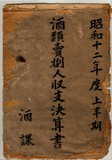 昭和十二年度上半期
酒類賣捌人収支決算書
酒課